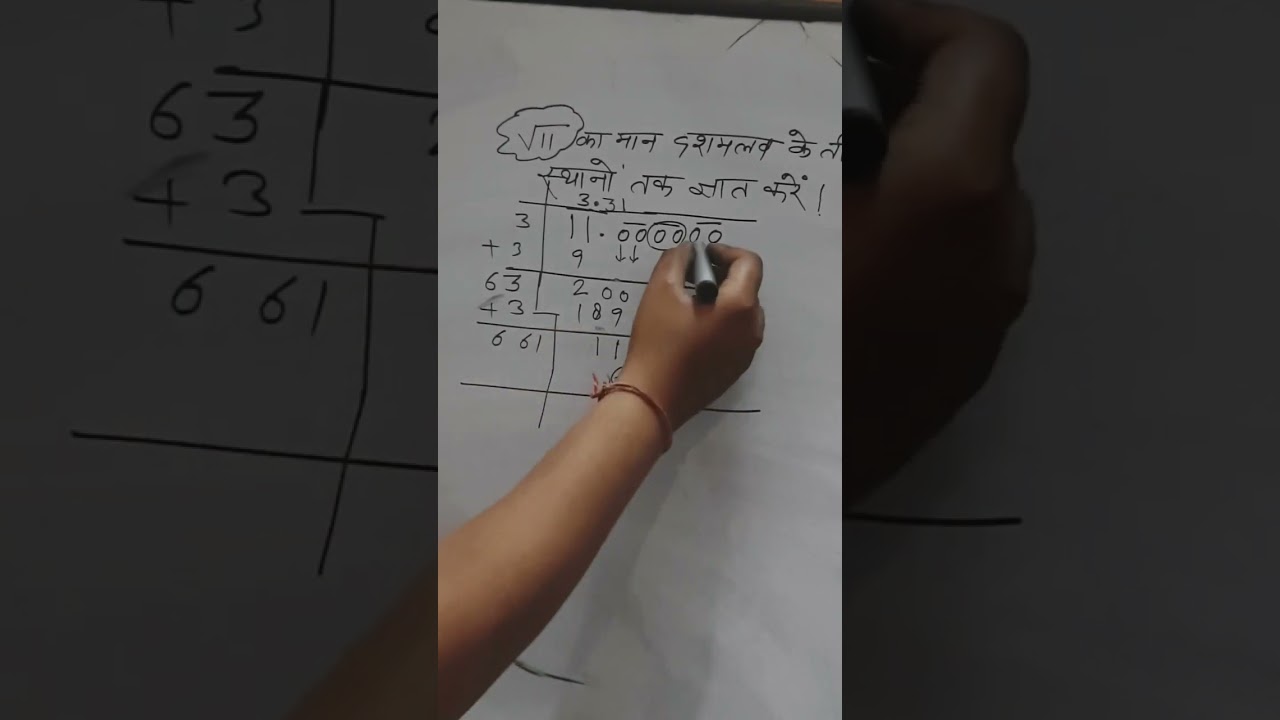 √11 का मान दशमलव के
स्थानों तक ज्ञात करें!
3.31
3 11.000000
+3 9 ↓↓
63 200
+3 189
661 11